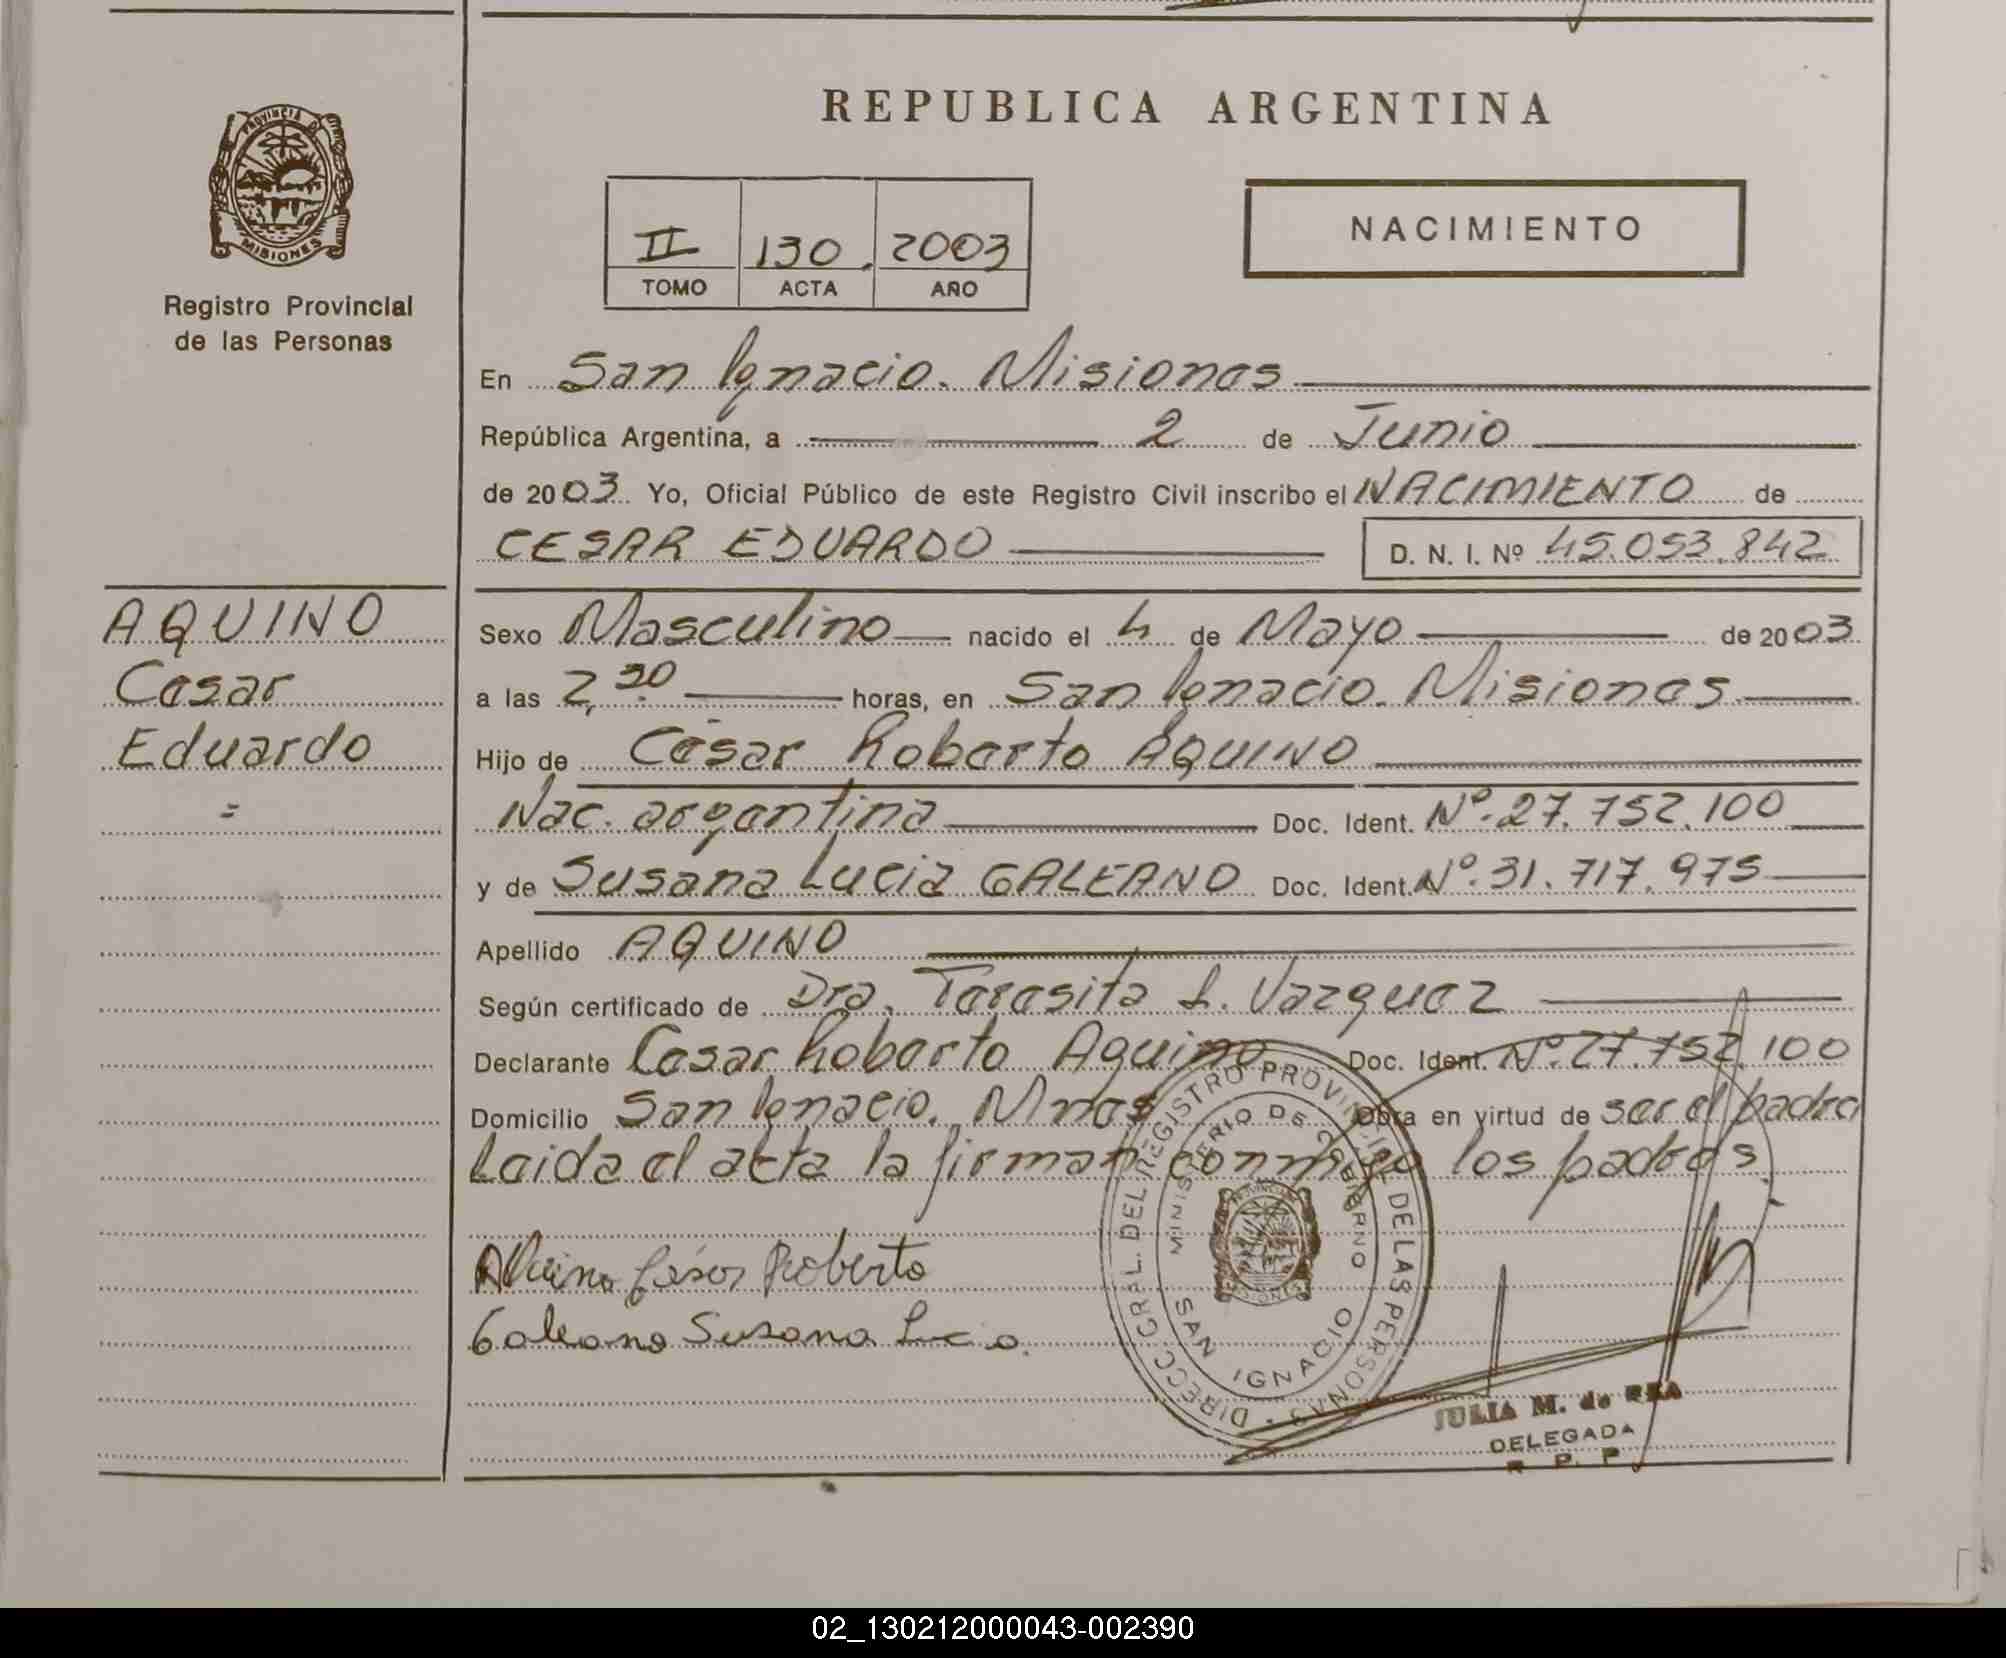 REPUBLICA ARGENTINA
PROVINCIA DE
MISIONES
Registro Provincial
de las Personas
II 130 2003
TOMO ACTA AÑO
NACIMIENTO
En San Ignacio. Misiones
República Argentina, a 2 de Junio
de 2003 Yo, Oficial Público de este Registro Civil inscribo el NACIMIENTO de
CESAR EDUARDO D. N. I. Nº 45.053.842
AQUINO
Cesar
Eduardo
=
Sexo Masculino nacido el 4 de Mayo de 2003
a las 2,30 horas, en San Ignacio. Misiones
Hijo de César Roberto AQUINO
Nac. argentina Doc. Ident. Nº.27.752.100
y de Susana Lucia GALEANO Doc. Ident. Nº.31.717.975
Apellido AQUINO
Según certificado de Dra. Teresita L. Vazquez
Declarante Cesar Roberto Aquino Doc. Ident. Nº.27.752.100
Domicilio San Ignacio. Mnes Obra en virtud de ser el padre
Leida el acta la firman conmigo los padres.
Aquino César Roberto
Galeano Susana Lucia.
DIRECC. GRAL. DEL REGISTRO PROVINCIAL DE LAS PERSONAS
MINISTERIO DE GOBIERNO
SAN IGNACIO
JULIA M. de REA
DELEGADA
R. P. P.
02_130212000043-002390